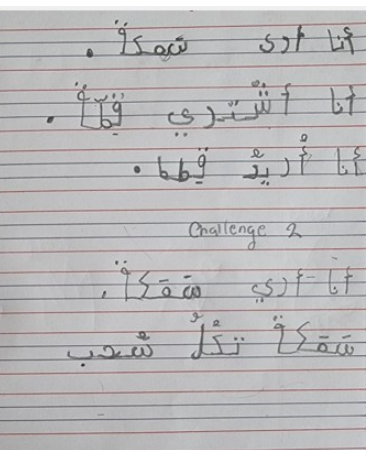 أنا أرى سَمكة .
أنا أشتري قِطّة .
أنا أُريدُ قِطط .
Challenge 2
أنا أري سَمَكة .
سَمَكة تكُلُ